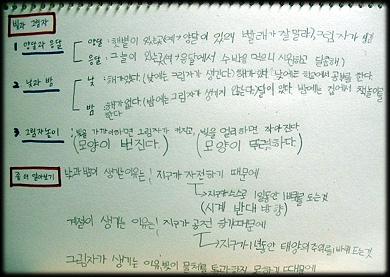 빛과 그림자
1 양달과 응달 양달: 햇볕이 있는 (예: 양달이 있의 빨래가 잘 말라) 그림자가
응달: 그늘이 있는 (예: 응달에서 수박을 먹으니 시원하고 달콤해)
2 낮과 밤 낮: 해가 있다 (낮에는 그림자가 생긴다) 해가 있다 낮에는 학교에서 공부를 한다.
밤: 해가 없다 (밤에는 그림자가 생기지 않는다) 달이 있다 밤에는 집에서
3 그림자놀이: 빛을 가까이하면 그림자가 커진다, 빛을 멀리하면 작아진다
(모양이 번진다) (모양이 뚜렷하다)
좀 더 알아보기 낮과 밤이 생기는 이유는: 지구가 자전하기 때문에
지구가 스스로 1일동안 1바퀴를 도는 것
(시계 반대 방향)
계절이 생기는 이유는: 지구가 공전하기 때문에
지구가 1년동안 태양의 주위를 1바퀴 도는 것
그림자가 생기는 이유: 빛이 물체를 통과하지 못하기 때문에